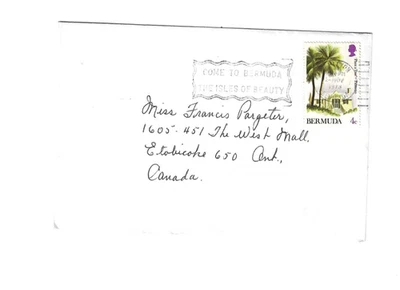 COME TO BERMUDA
THE ISLES OF BEAUTY
BERMUDA 4c
Miss Francis Pargeter,
1605-451 The West Mall,
Etobicoke 650 Ont.,
Canada.